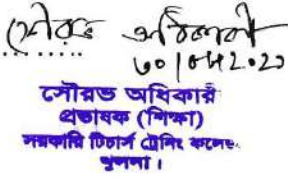 সৌরভ অধিকারী
সৌরভ অধিকারী
প্রভাষক (শিক্ষা)
সরকারি টিচার্স ট্রেনিং কলেজ
খুলনা।